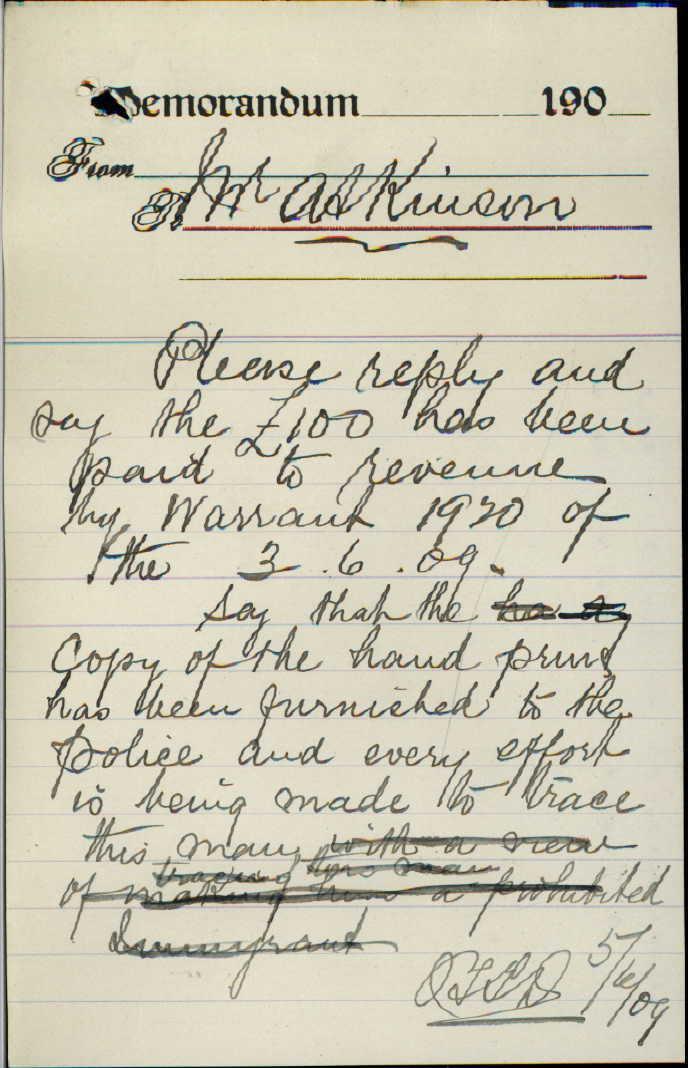 Memorandum 190
From
To Mr Atkinson
Please reply and
say the £100 has been
paid to revenue
by Warrant 1920 of
the 3.6.09.
Say that the
Copy of the hand print
has been furnished to the
police and every effort
is being made to trace
this man with a view
tracing this man
of making him a prohibited
Immigrant
5/6/09